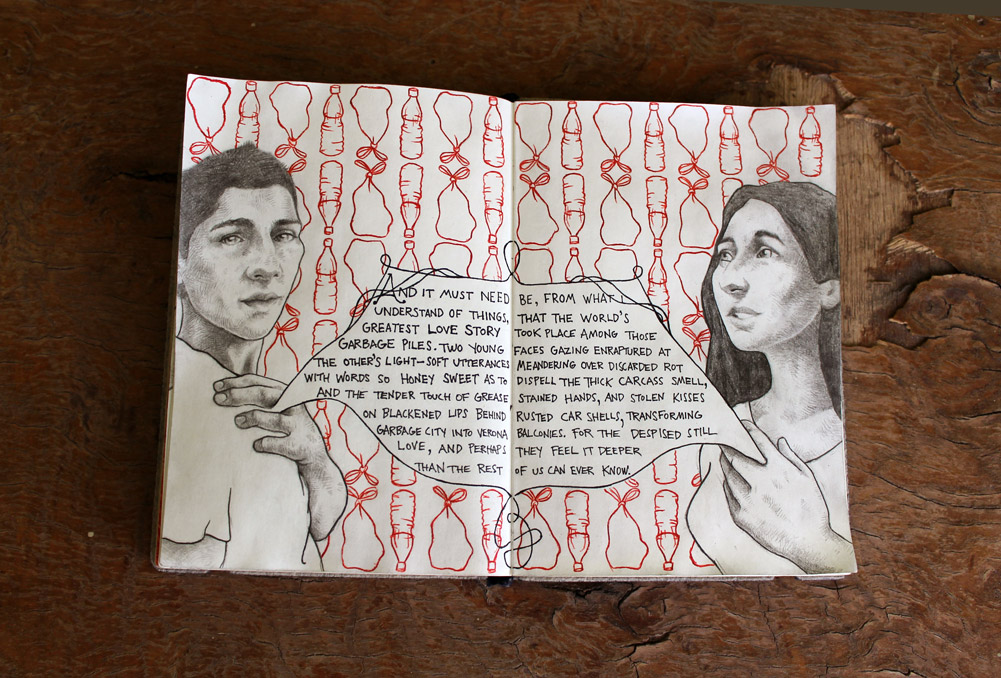 AND IT MUST NEED BE, FROM WHAT I
UNDERSTAND OF THINGS, THAT THE WORLD'S
GREATEST LOVE STORY TOOK PLACE AMONG THOSE
GARBAGE PILES. TWO YOUNG FACES GAZING ENRAPTURED AT
THE OTHER'S LIGHT-SOFT UTTERANCES MEANDERING OVER DISCARDED ROT
WITH WORDS SO HONEY SWEET AS TO DISPELL THE THICK CARCASS SMELL,
AND THE TENDER TOUCH OF GREASE STAINED HANDS, AND STOLEN KISSES
ON BLACKENED LIPS BEHIND RUSTED CAR SHELLS, TRANSFORMING
GARBAGE CITY INTO VERONA BALCONIES. FOR THE DESPISED STILL
LOVE, AND PERHAPS THEY FEEL IT DEEPER
THAN THE REST OF US CAN EVER KNOW.